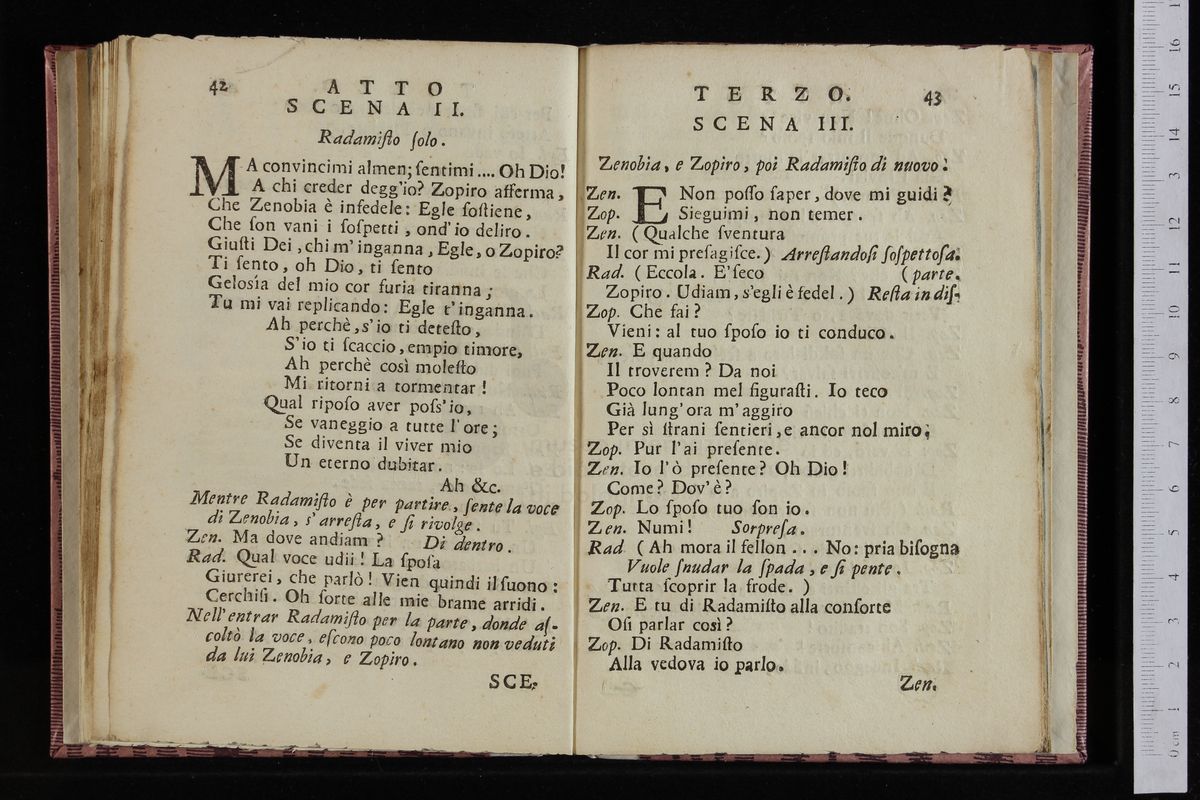 42
ATTO
SCENA II.
Radamiſto ſolo.
MA convincimi almen; ſentimi .... Oh Dio!
A chi creder degg'io? Zopiro afferma,
Che Zenobia è infedele: Egle ſoſtiene,
Che ſon vani i ſoſpetti, ond'io deliro.
Giuſti Dei, chi m'inganna, Egle, o Zopiro?
Ti ſento, oh Dio, ti ſento
Gelosía del mio cor furia tiranna;
Tu mi vai replicando: Egle t'inganna.
Ah perchè, s'io ti deteſto,
S'io ti ſcaccio, empio timore,
Ah perchè così moleſto
Mi ritorni a tormentar!
Qual ripoſo aver poſs'io,
Se vaneggio a tutte l'ore;
Se diventa il viver mio
Un eterno dubitar.
Ah &c.
Mentre Radamiſto è per partire, ſente la voce
di Zenobia, s'arreſta, e ſi rivolge.
Zen. Ma dove andiam? Di dentro.
Rad. Qual voce udii! La ſpoſa
Giurerei, che parlò! Vien quindi il ſuono:
Cerchiſi. Oh ſorte alle mie brame arridi.
Nell'entrar Radamiſto per la parte, donde aſ-
coltò la voce, eſcono poco lontano non veduti
da lui Zenobia, e Zopiro.
SCE-
TERZO. 43
SCENA III.
Zenobia, e Zopiro, poi Radamiſto di nuovo.
Zen. E Non poſſo ſaper, dove mi guidi?
Zop. Sieguimi, non temer.
Zen. (Qualche ſventura
Il cor mi preſagiſce.) Arreſtandoſi ſoſpettoſa.
Rad. (Eccola. E'ſeco (parte.
Zopiro. Udiam, s'egli è fedel.) Reſta in diſ-
Zop. Che fai?
Vieni: al tuo ſpoſo io ti conduco.
Zen. E quando
Il troverem? Da noi
Poco lontan mel figuraſti. Io teco
Già lung'ora m'aggiro
Per sì ſtrani ſentieri, e ancor nol miro.
Zop. Pur l'ai preſente.
Zen. Io l'ò preſente? Oh Dio!
Come? Dov'è?
Zop. Lo ſpoſo tuo ſon io.
Zen. Numi! Sorpreſa.
Rad (Ah mora il fellon ... No: pria biſogna
Vuole ſnudar la ſpada, e ſi pente.
Tutta ſcoprir la frode.)
Zen. E tu di Radamiſto alla conſorte
Oſi parlar così?
Zop. Di Radamiſto
Alla vedova io parlo.
Zen.
0 cm 1 2 3 4 5 6 7 8 9 10 11 12 13 14 15 16